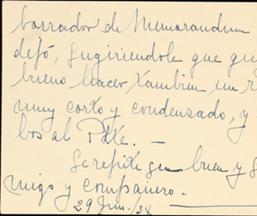 borrador de Memorandum
dejó, sugiriendole que
bueno hacer tambien un
muy corto y condensado, y
bos al Pdte. —
Se repite su buen y
migo y compañero. —
29 Jun./38